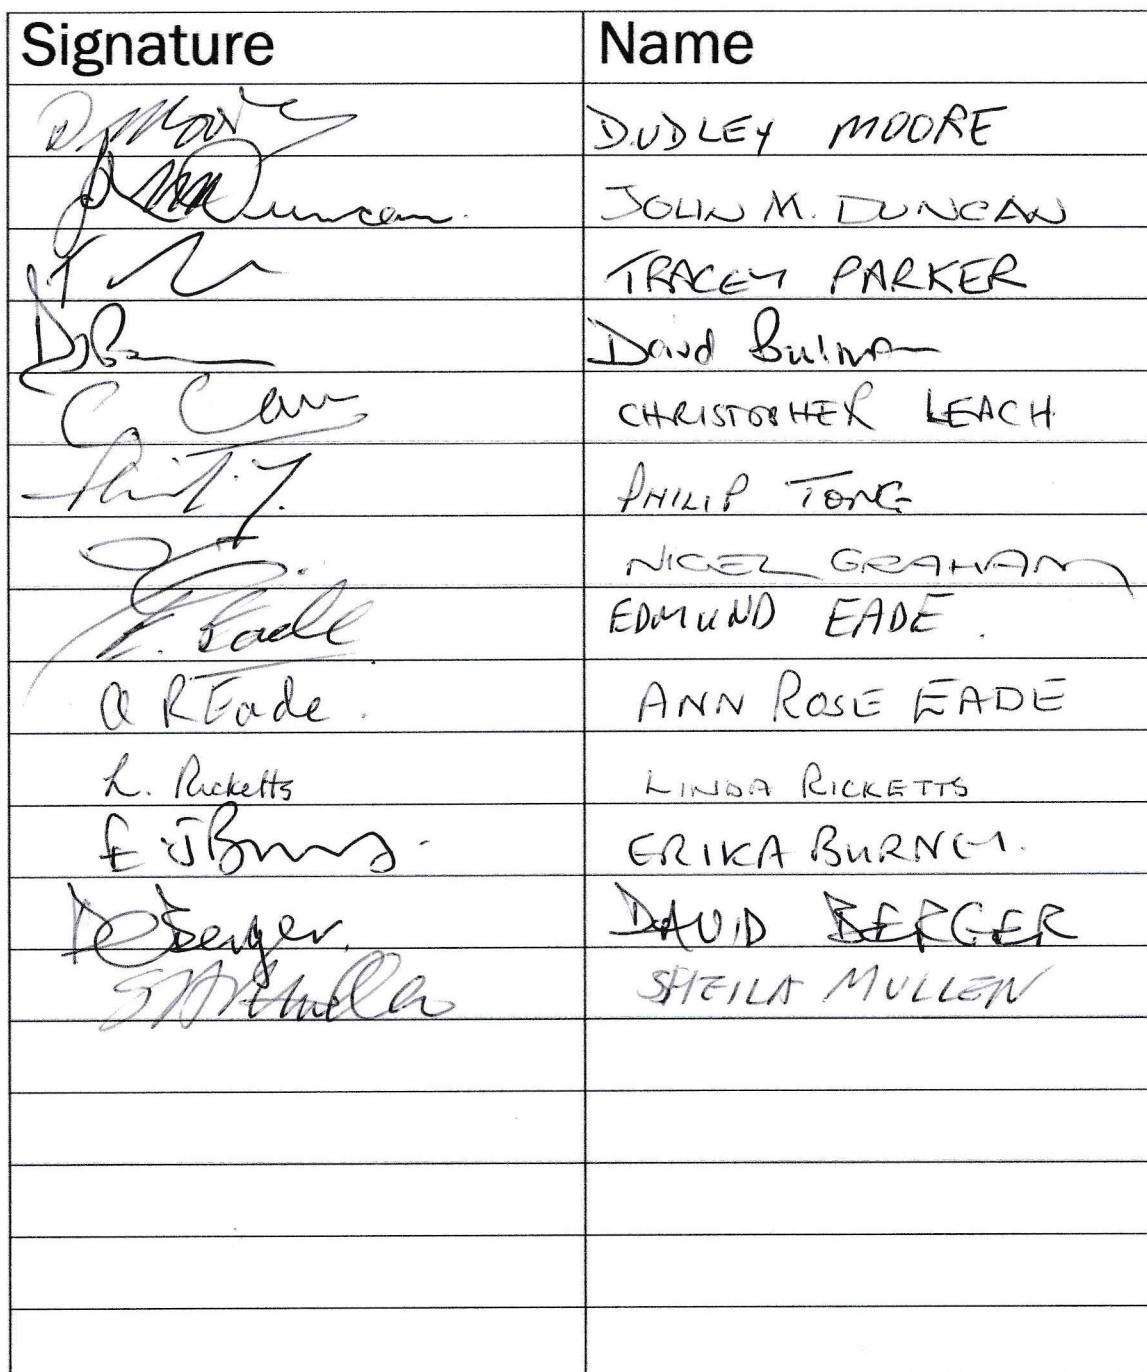 Signature Name
D. Moore DUDLEY MOORE
Duncan. JOHN M. DUNCAN
T TRACEY PARKER
David
C. CHRISTOPHER LEACH
PHILIP TONG
NIGEL GRAHAM
E. Eade EDMUND EADE.
A R Eade. ANN ROSE EADE
L. Ricketts LINDA RICKETTS
E J ERIKA
Berger. DAVID BERGER
SHEILA MULLEN